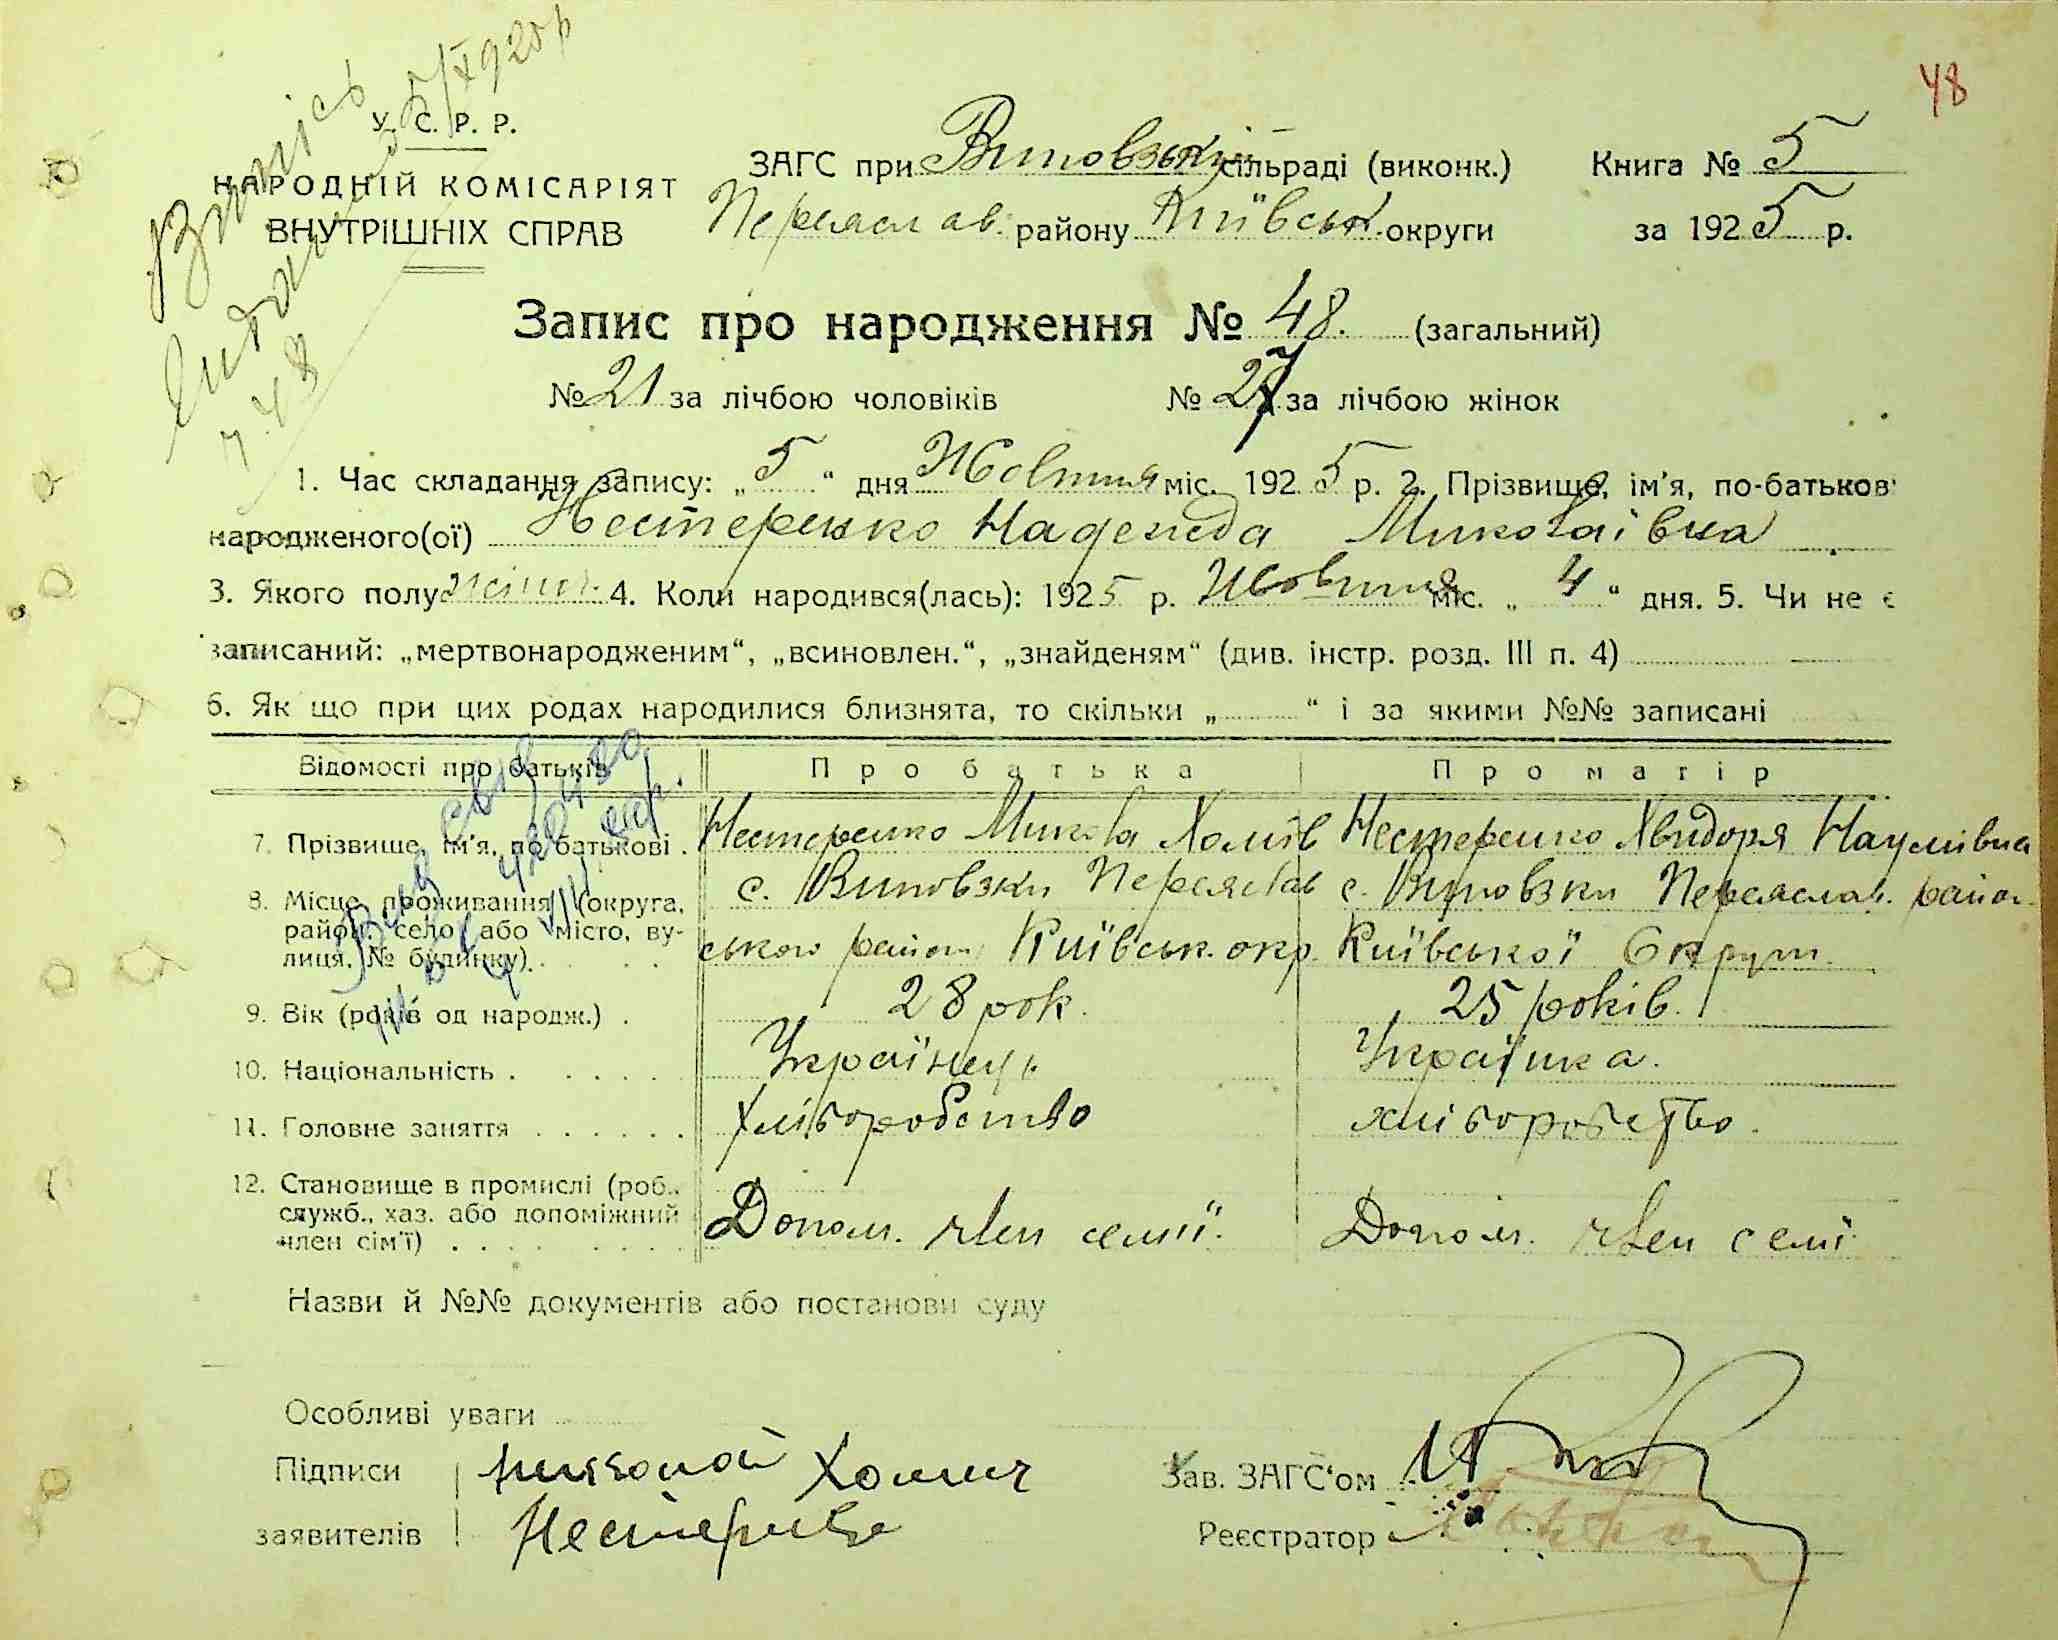 48
Випись
У. С. Р. Р.
НАРОДНІЙ КОМІСАРІЯТ
ВНУТРІШНІХ СПРАВ
ЗАГС при Виповзькій сільраді (виконк.) Книга № 5
Переяслав. району Київськ. округи за 1925 р.
Запис про народження № 48. (загальний)
№ 21 за лічбою чоловіків № 27 за лічбою жінок
1. Час складання запису: „ 5 “ дня Жовтня міс. 1925 р. 2. Прізвище, ім'я, по-батьков
народженого(ої) Нестеренко Надежда Миколаівна
3. Якого полу жіноч. 4. Коли народився(лась): 1925 р. Жовтня міс. „ 4 “ дня. 5. Чи не є
записаний: „мертвонародженим“, „всиновлен.“, „знайденям“ (див. інстр. розд. III п. 4)
6. Як що при цих родах народилися близнята, то скільки „ “ і за якими №№ записані
Відомості про батьків Про батька Про матір
7. Прізвище, ім'я, по батькові . Нестеренко Микола Хомів Нестеренко Хвидоря Наумівна
8. Місце проживання (округа, район, село або місто, ву-лиця, № будинку). с. Виповзки Переяслав с. Виповзки Переяслав. район
ського район Київськ. окр. Київської Округи
9. Вік (років од народж.) . 28 рок. 25 років.
10. Національність . Українець Українка.
11. Головне заняття . . . . . . Хліборобство хліборобство.
12. Становище в промислі (роб., служб., хаз. або допоміжний член сім'ї) . . . . Допом. член семії. Допом. член семі
Назви й №№ документів або постанови суду
Особливі уваги
Підписи Николай Хомич Зав. ЗАГС'ом
заявителів Нестеренко Реєстратор